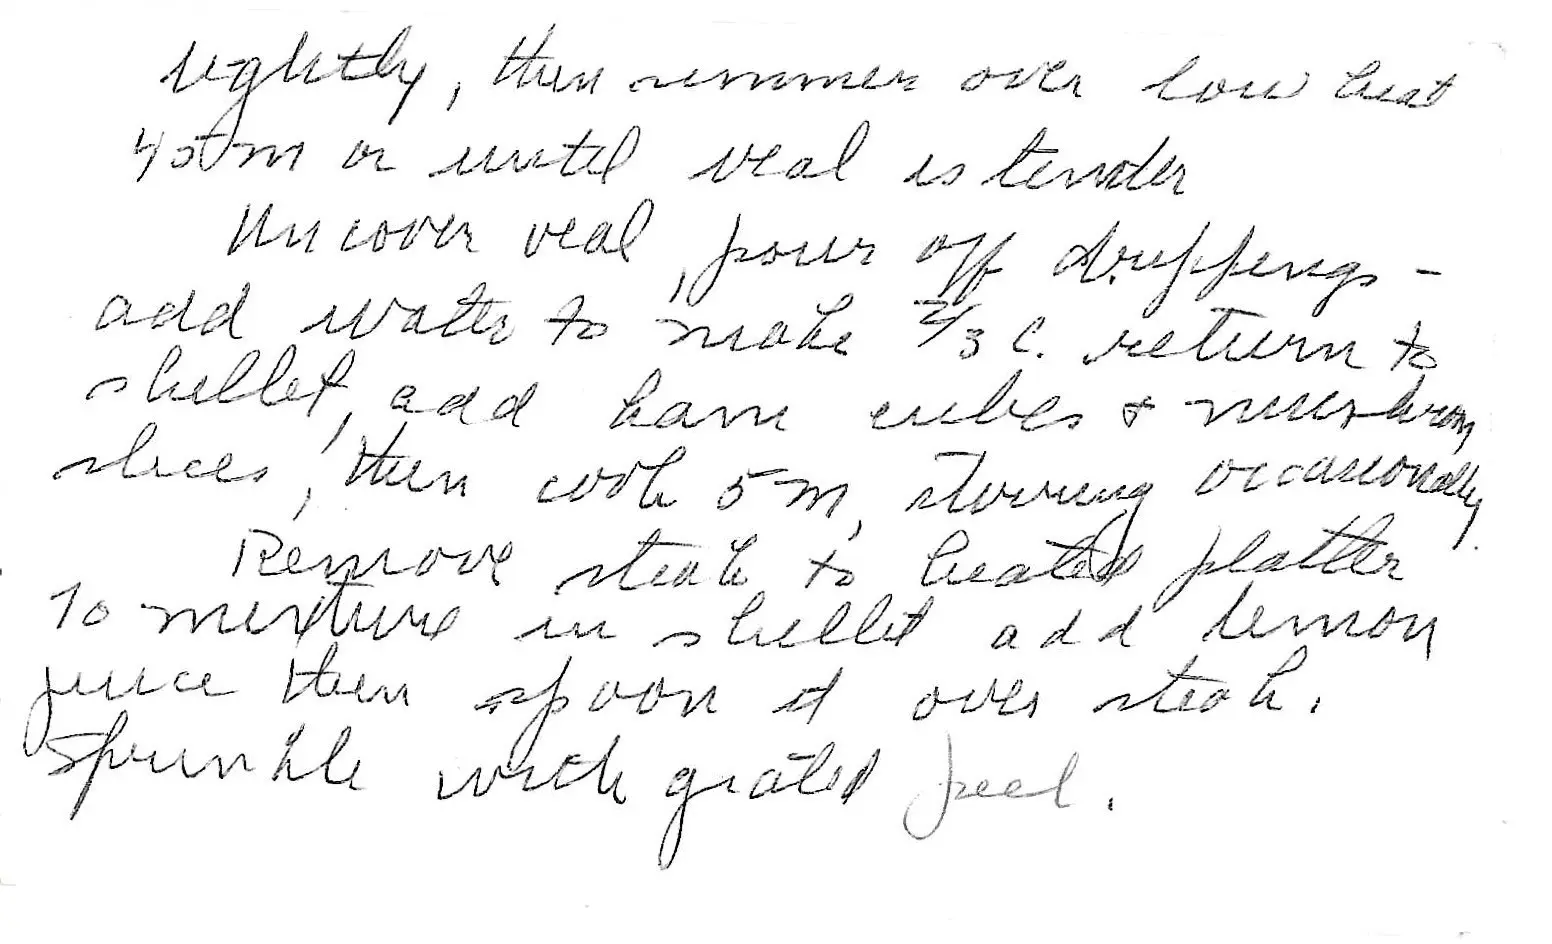 tightly, then simmer over low heat
45 m or until veal is tender
Uncover veal, pour off drippings -
add water to make 2/3 c. return to
skillet, add ham cubes & mushroom
slices, then cook 5 m, stirring occasionally.
Remove steak to heated platter
To mixture in skillet add lemon
juice then spoon it over steak.
Sprinkle with grated peel.